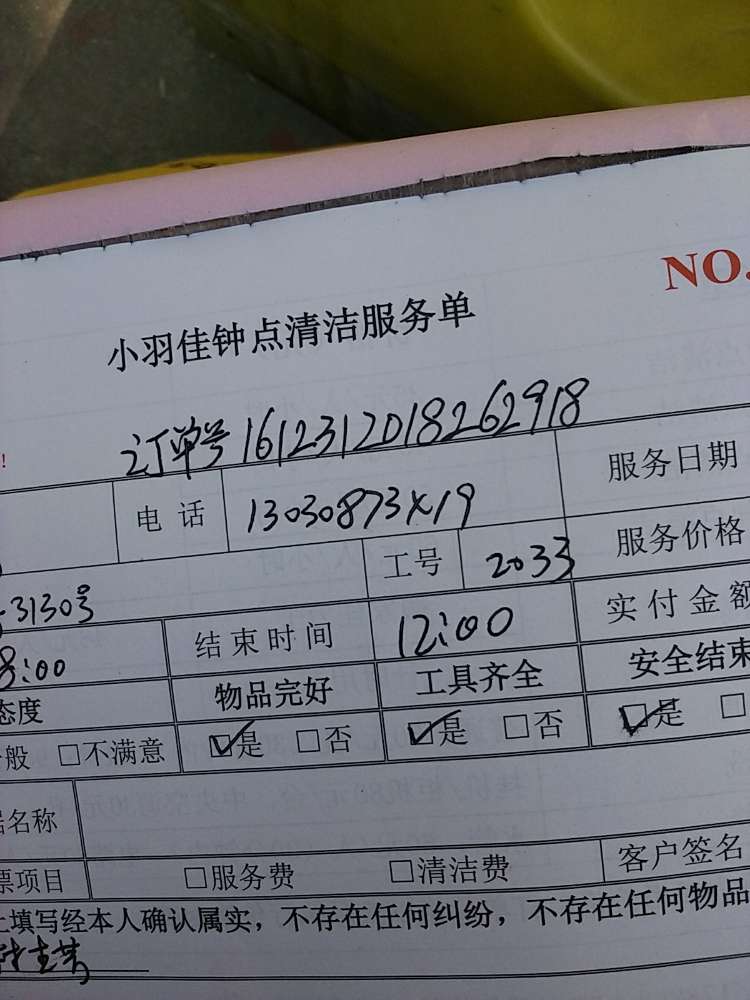 NO.
小羽佳钟点清洁服务单
!
订单号 1612312018262918
电话 13030873x19 服务日期
3130号 工号 2033 服务价格
8:00 结束时间 12:00 实付金额
态度 物品完好 工具齐全 安全结束
般 □不满意 ☑是 □否 ☑是 □否 ☑是 □
名称
票项目 □服务费 □清洁费 客户签名
上填写经本人确认属实，不存在任何纠纷，不存在任何物品